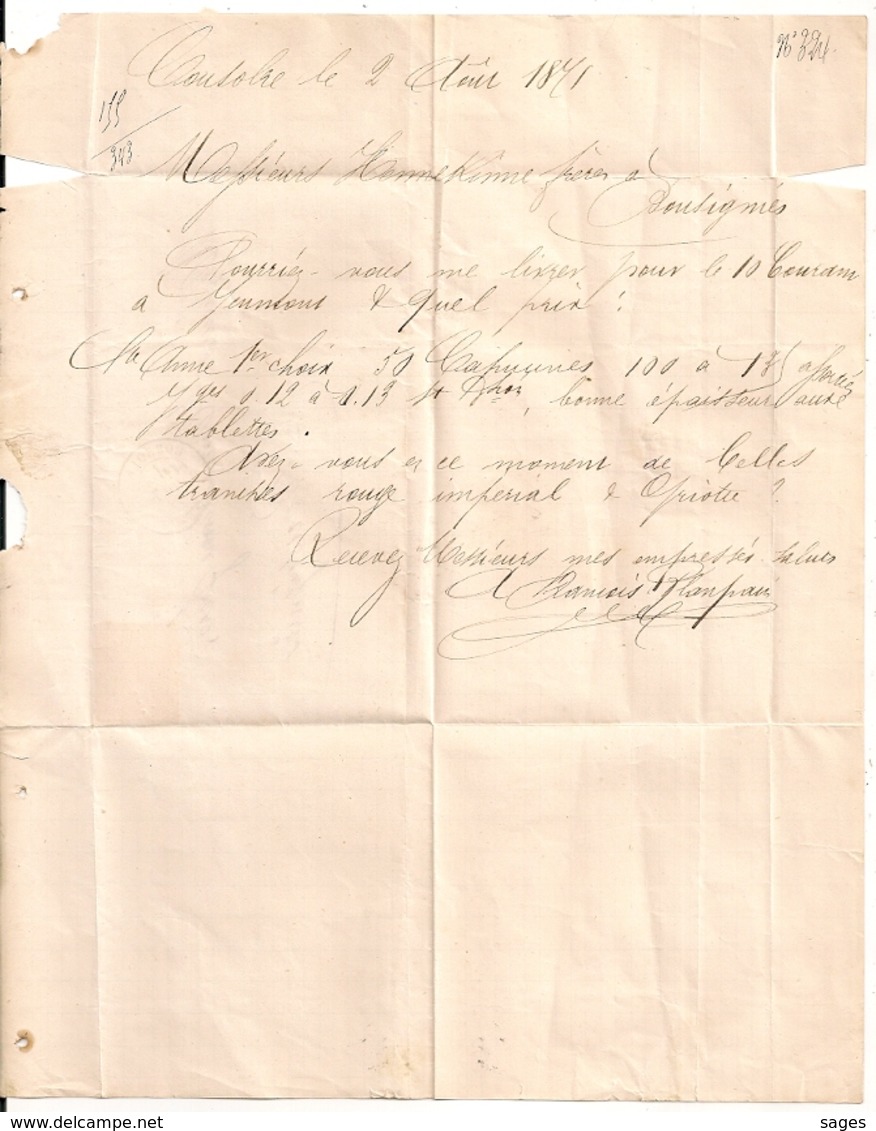 Nº 224
Cousolre le 2 Août 1871
155
343
Messieurs Hennekinne frères à
Bousignies
Pourriez-vous me livrer pour le 10 Courant
à Jeumont & quel prix :
Ste Anne 1er choix 50 Capucines 100 à 1
0.12 à 0.13 bonne épaisseur aux
tablettes.
Avez-vous en ce moment de belles
tranches rouge impérial & Griotte ?
Recevez Messieurs mes empressés saluts
François
sages